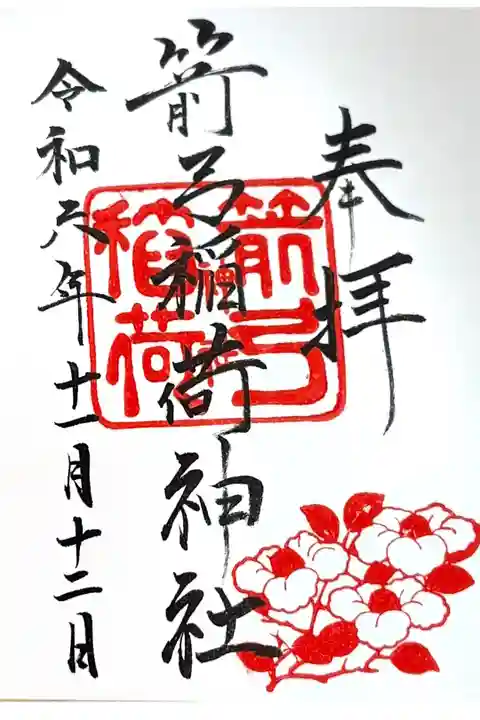 奉拝
箭弓稲荷神社
箭弓
稲荷
令和六年十一月十二日